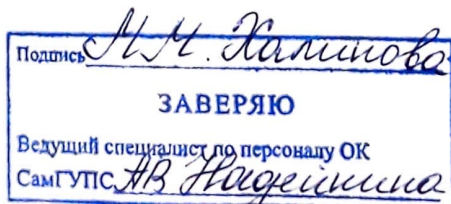 Подпись М.М. Халикова
ЗАВЕРЯЮ
Ведущий специалист по персоналу ОК
СамГУПС А.В. Надейкина